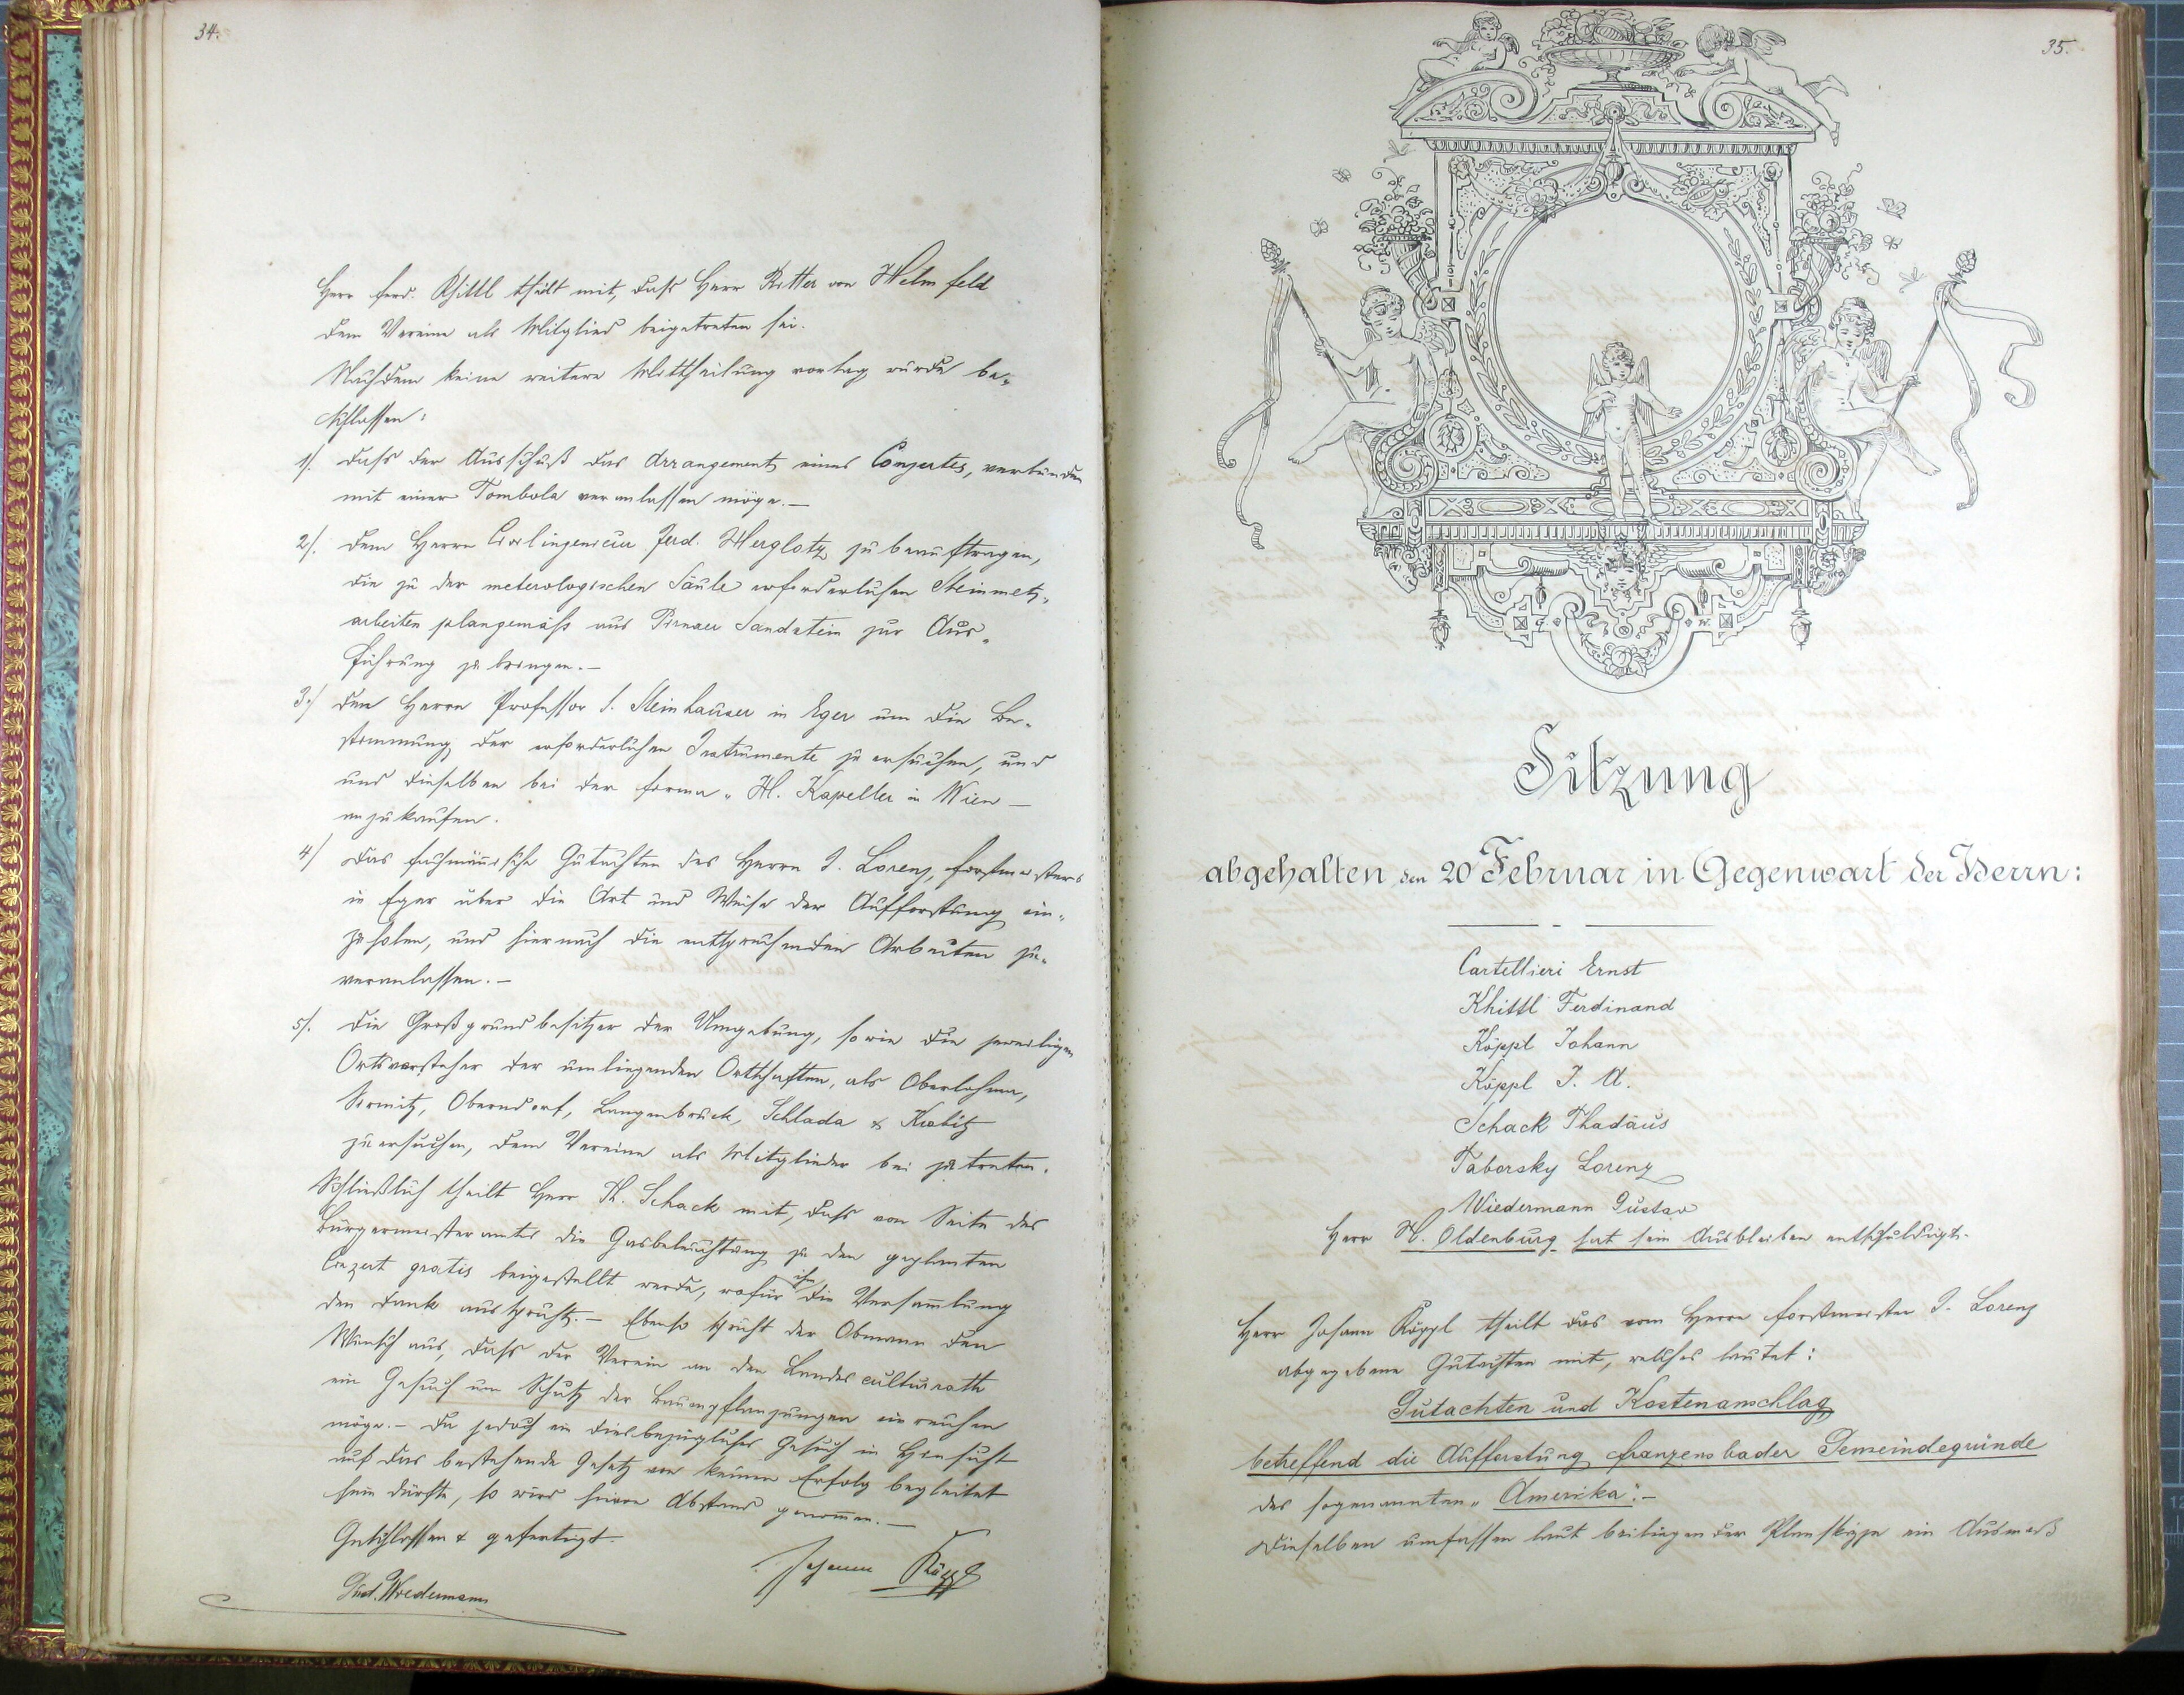 34.
Herr Ferd. Khittl theilt mit, dass Herr Ritter von Helmfeld
dem Vereine als Mitglied beigetreten sei.
Nachdem keine weitere Mittheilung vorlag wurde be-
schlossen:
1/. dass der Ausschuß das Arrangement eines Conzertes, verbunden
mit einer Tombola veranlassen möge. —
2/. dem Herrn Civilingenieur Ferd. Herglotz zu beauftragen,
die zu der meterologischen Säule erforderlichen Steinmetz-
arbeiten plangemäß aus Pirnaer Sandstein zur Aus-
führung zu bringen. —
3./ den Herrn Professor S. Steinhauser in Eger um die Be-
stimmung der erforderlichen Instrumente zu ersuchen, und
und dieselben bei der Firma „H. Kapeller in Wien —
anzukaufen.
4/ das fachmännische Gutachten des Herrn J. Lorenz, Forstmeisters
in Eger über die Art und Weise der Aufforstung ein-
zuholen, und hiernach die entsprechenden Arbeiten zu-
veranlassen. —
5/. die Großgrundbesitzer der Umgebung, sowie die jeweiligen
Ortsvorsteher der umliegenden Ortschaften, als Oberlohma,
Sirmitz, Oberndorf, Langenbruck, Schlada &
zu ersuchen, dem Vereine als Mitglieder bei zu treten.
Schließlich theilt Herr Th. Schack mit, dass von Seite des
Bürgermeisteramtes die Gasbeleuchtung zu den geplanten
Conzert gratis beigestellt werde, wofür ihm die Versammlung
den Dank ausspricht. — Ebenso spricht der Obmann den
Wunsch aus, dass der Verein an den Landesculturrath
ein Gesuch um Schutz der Baumpflanzungen einreichen
möge. — Da jedoch ein diesbezügliches Gesuch in Hinsicht
auf das bestehende Gesetz von keinem Erfolg begleitet
sein dürfte, so wird hievon Abstand genommen. —
Geschlossen & gefertigt.
Johann Köppl
Gust. Wiedermann
35.
Sitzung
abgehalten den 20 Februar in Gegenwart der Herrn:
Cartellieri Ernst
Khittl Ferdinand
Köppl Johann
Köppl J. A.
Schack Thadäus
Taborsky Lorenz
Wiedermann Gustav
Herr H. Oldenburg hat sein Ausbleiben entschuldigt.
Herr Johann Köppl theilt das vom Herrn Forstmeister J. Lorenz
abgegebene Gutachten mit, welches lautet:
Gutachten und Kostenanschlag
betreffend die Aufforstung franzensbader Gemeindegründe
des sogenannten „Amerika". —
Dieselben umfassen laut beiliegender Planskizze ein Ausmaß